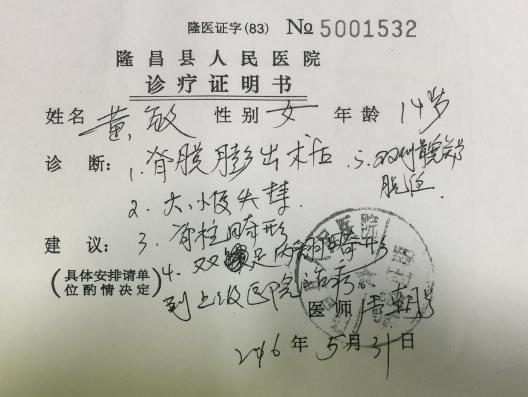 隆医证字(83) № 5001532
隆昌县人民医院
诊疗证明书
姓名 黄敏 性别 女 年龄 14岁
诊断: 1. 脊膜膨出术后 5. 双侧髋关节
脱位
2. 大小便失禁.
3. 脊柱畸形
建议: 4. 双足内翻畸形
(具体安排请单位酌情决定)
到上级医院治疗
医师
2016年5月31日